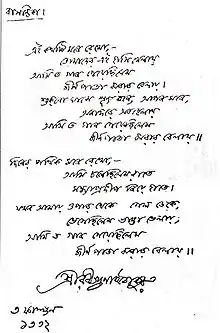 বাসন্তিকা।
এই কথাটি মনে রেখো,—
তোমাদের এই হাসি খেলায়
আমি ত গান গেয়েছিলেম
জীর্ণ পাতা ঝরার বেলায়।
শুকনো ঘাসে শূন্য বনে, আপন মনে,
অনাদরে অবহেলায়
আমি ত গান গেয়েছিলেম
জীর্ণ পাতা ঝরার বেলায়॥
দিনের পথিক মনে রেখো,—
আমি চলেছিলেম রাতে
সন্ধ্যাপ্রদীপ নিয়ে হাতে।
যখন আমায় ওপার থেকে গেল ডেকে,
ভেসেছিলেম ভাঙা ভেলায়;
আমি ত গান গেয়েছিলেম
জীর্ণ পাতা ঝরার বেলায়॥
শ্রীরবীন্দ্রনাথ ঠাকুর
৩ ফাল্গুন
১৩৩২